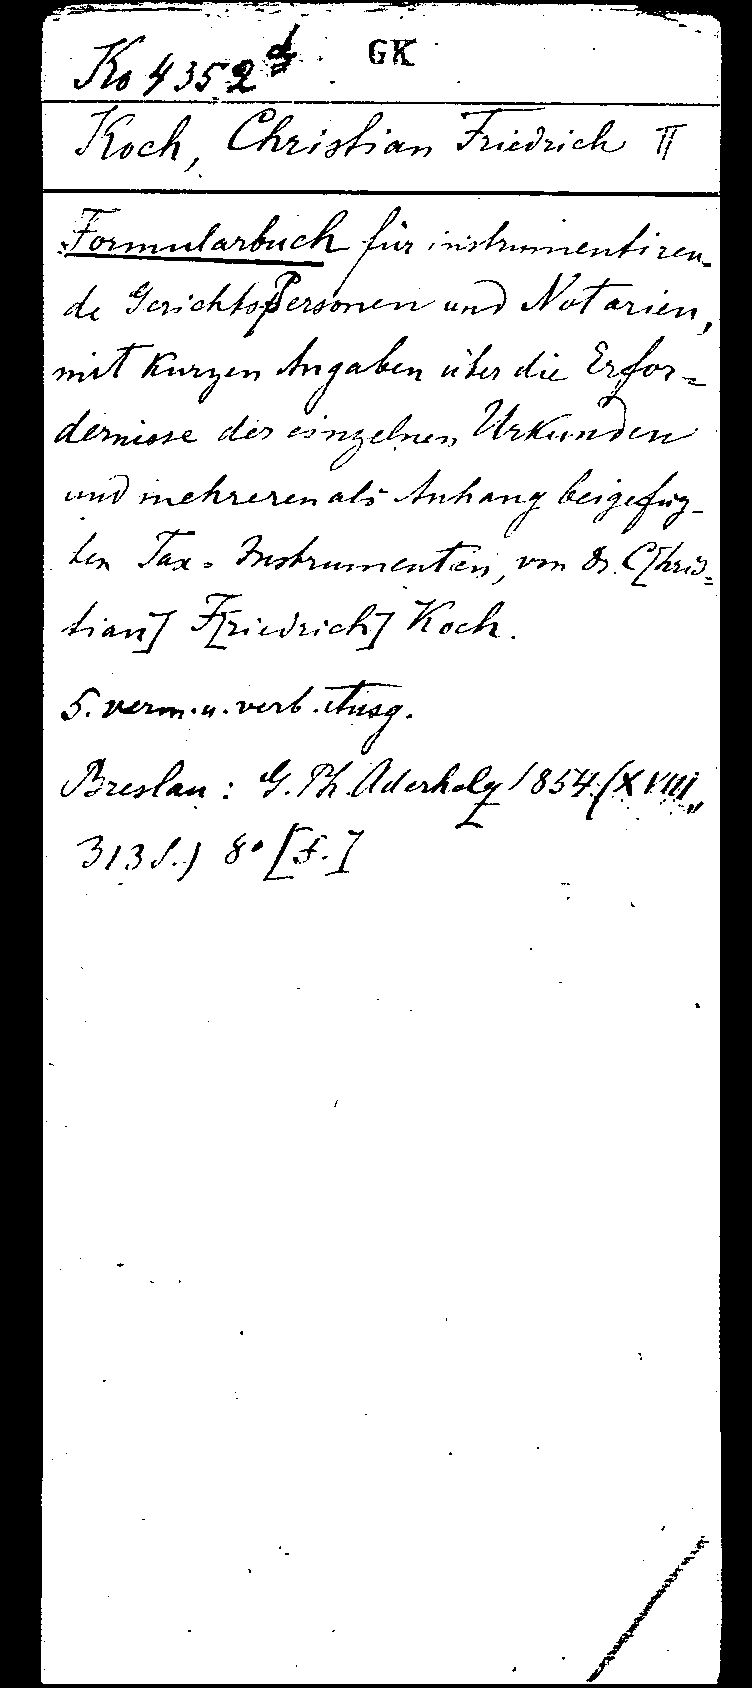 Ko 4352 d GK
Koch, Christian Friedrich II
Formularbuch für instrumentiren-
de GerichtsPersonen und Notarien,
mit kurzen Angaben über die Erfor=
dernisse der einzelnen Urkunden
und mehreren als Anhang beigefüg-
ten Tax=Instrumenten, von Dr. C[hris=
tian] F[riedrich] Koch.
5. verm. u. verb. Ausg.
Breslau: G. Ph. Aderholz 1854. (XVIII,
313 S.) 8° [F.]